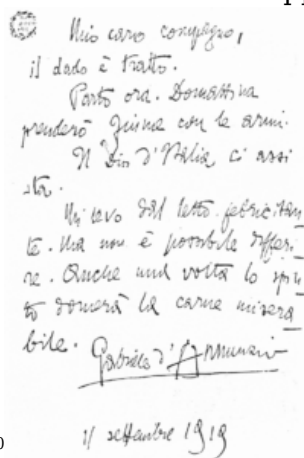 Mio caro compagno,
il dado è tratto.
Parto ora. Domattina
prenderò Fiume con le armi.
Il Dio d'Italia ci assi
sta.
Mi levo dal letto febricitan
te. Ma non è possibile differi-
re. Anche una volta lo spiri
to domerà la carne misera
bile.
Gabriele d'Annunzio
11 settembre 1919